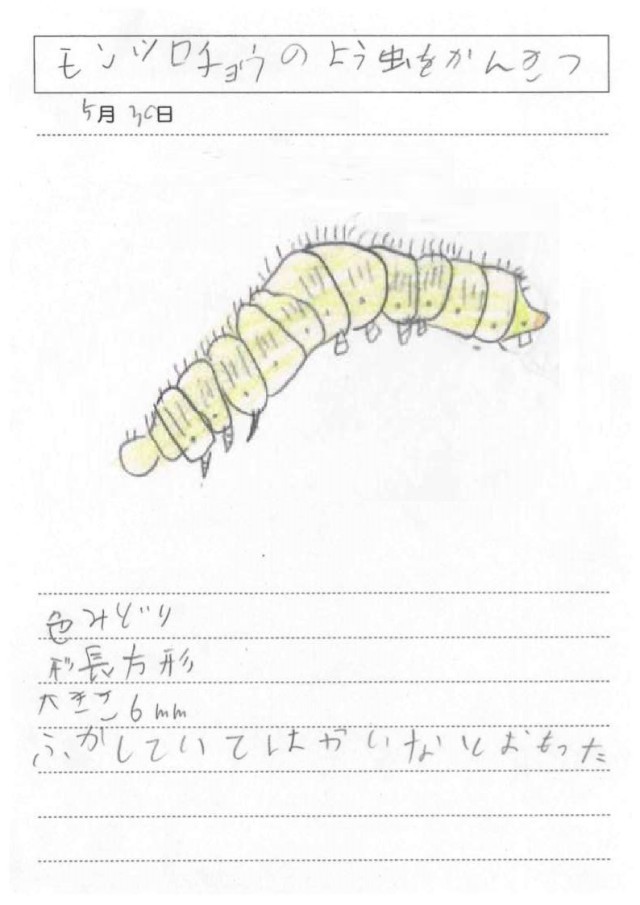 モンシロチョウのよう虫をかんさつ
5月30日
色みどり
形長方形
大きさ6mm
ふかしていてはやいなとおもった